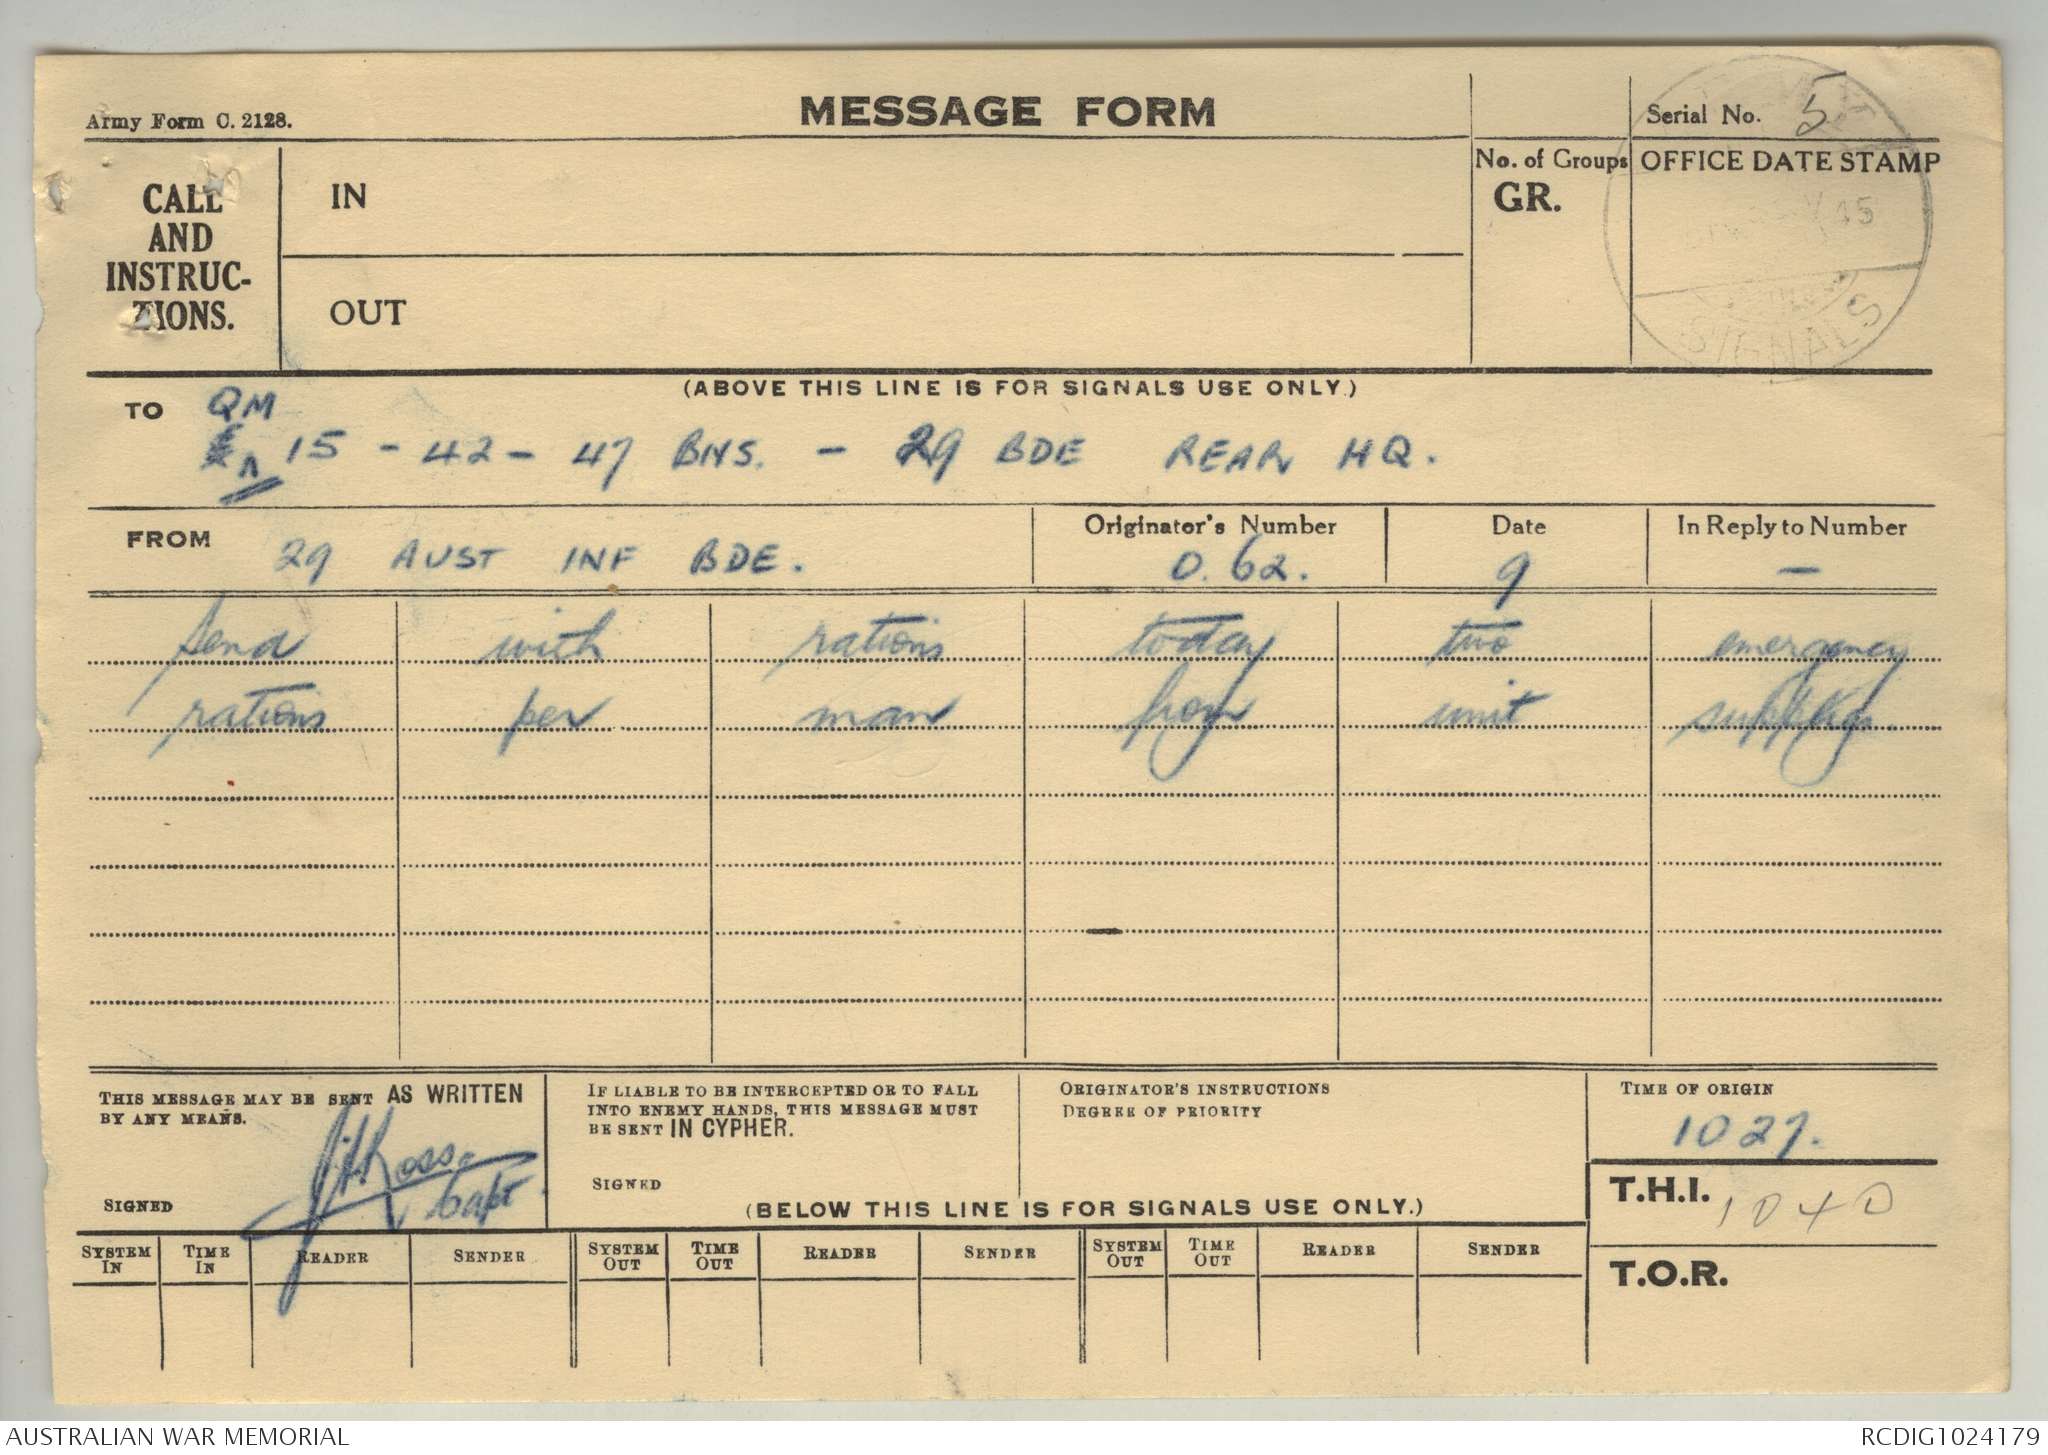 Army Form C. 2128.
MESSAGE FORM
Serial No. 5
CALL AND INSTRUC-TIONS.
IN
OUT
No. of Groups GR.
OFFICE DATE STAMP
45
SIGNALS
(ABOVE THIS LINE IS FOR SIGNALS USE ONLY.)
TO QM
15 - 42 - 47 BNS. - 29 BDE REAR HQ.
FROM 29 AUST INF BDE.
Originator's Number O. 62.
Date 9
In Reply to Number -
send with rations today two emergency
rations per man from unit supplies.
THIS MESSAGE MAY BE SENT AS WRITTEN
BY ANY MEANS.
SIGNED Capt.
IF LIABLE TO BE INTERCEPTED OR TO FALL
INTO ENEMY HANDS, THIS MESSAGE MUST
BE SENT IN CYPHER.
SIGNED
ORIGINATOR'S INSTRUCTIONS
DEGREE OF PRIORITY
TIME OF ORIGIN
1027.
T.H.I. 1040
T.O.R.
(BELOW THIS LINE IS FOR SIGNALS USE ONLY.)
SYSTEM IN TIME IN READER SENDER SYSTEM OUT TIME OUT READER SENDER SYSTEM OUT TIME OUT READER SENDER
AUSTRALIAN WAR MEMORIAL
RCDIG1024179